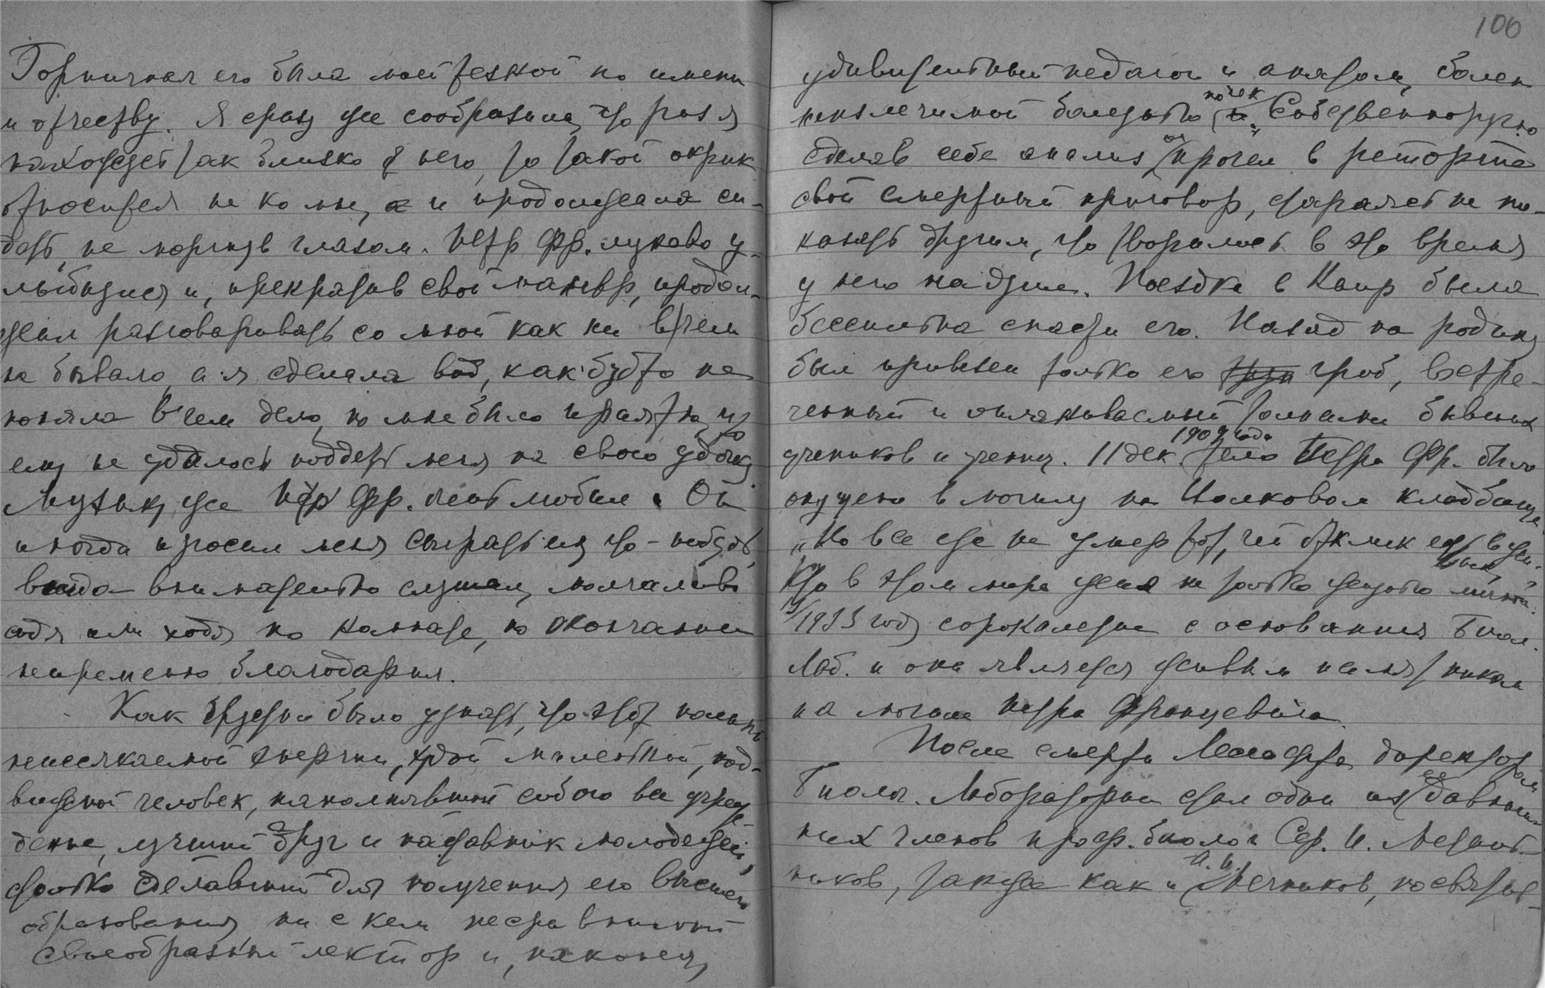 Горничная его была моей тезкой по имени
и отчеству. Я сразу же сообразила, что раз я
нахожусь так близко от него, то такой окрик
относится не ко мне, и продолжала си-
деть, не моргнув глазом. Петр Фр. лукаво у-
лыбнулся и, прекратив свой маневр, продол-
жал разговаривать со мной как ни в чем
не бывало, а я сделала вид, как будто не
поняла в чем дело, но мне было приятно, что
ему не удалось поддеть меня на свою удочку.
Музыку же Петр Фр. очень любил. Он
иногда просил меня сыграть ему что-нибудь,
всегда внимательно слушал, молчаливо
сидя или ходя по комнате, по окончании
непременно благодарил.
Как грустно было узнать, что этот
неиссякаемой энергии, этой маленькой, под-
вижной человек, наполнявший собою все учреж-
дение, лучший друг и наставник молодежи,
столько сделавший для получения его высшего
образования, ни с кем несравнимый
своеобразный лектор и, наконец,
100
удивительный педагог и анатом, болен
неизлечимой болезнью почек. Собственноручно
сделав себе анализ, он прочел в реторте
свой смертный приговор, стараясь не по-
казать другим, что творилось в это время
у него на душе. Поездка в Каир была
бессильна спасти его. Назад на родину
был привезен только его гроб, встре-
ченный и оплакиваемый толпами бывших
учеников и учениц. 11 дек. 1909 года тело Петра Фр. было
опущено в могилу на Волковом кладбище.
„Но все же не умер тот, чей отклик есть в
Кто в этом мире жил не только жизнью личной."
В 1933 году сорокалетие с основания Биол.
Лаб. и она является живым памятником
на могиле Петра Францевича.
После смерти Лесгафта директором
Биолог. Лаборатории стал один из ее давниш-
них членов проф. биолог Сер. И. Металь-
ников, также как и И. И. Мечников, посвятив-